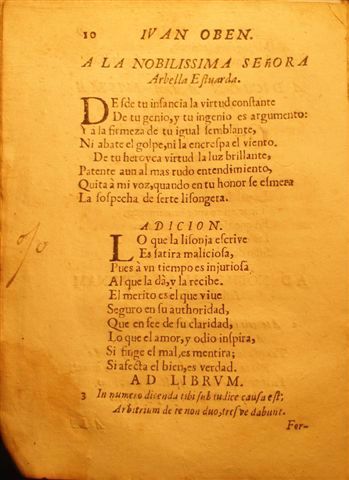 10 IVAN OBEN.
A LA NOBILISSIMA SEÑORA
Arbella Estuarda.
DEsde tu infancia la virtud constante
De tu genio, y tu ingenio es argumento:
Y a la firmeza de tu igual semblante,
Ni abate el golpe, ni la encrespa el viento.
De tu heroyca virtud la luz brillante,
Patente aun al mas rudo entendimiento,
Quita à mi voz, quando en tu honor se esmera
La sospecha de serte lisongera.
ADICION.
LO que la lisonja escrive
Es satira maliciosa,
Pues à vn tiempo es injuriosa
Al que la dà, y la recibe.
El merito es el que viue
Seguro en su authoridad,
Que en fee de su claridad,
Lo que el amor, y odio inspira,
Si finge el mal, es mentira;
Si afecta el bien, es verdad.
AD LIBRVM.
3 In numero dicenda tibi sub iudice causa est:
Arbitrium de te non duo, tresve dabunt.
For-